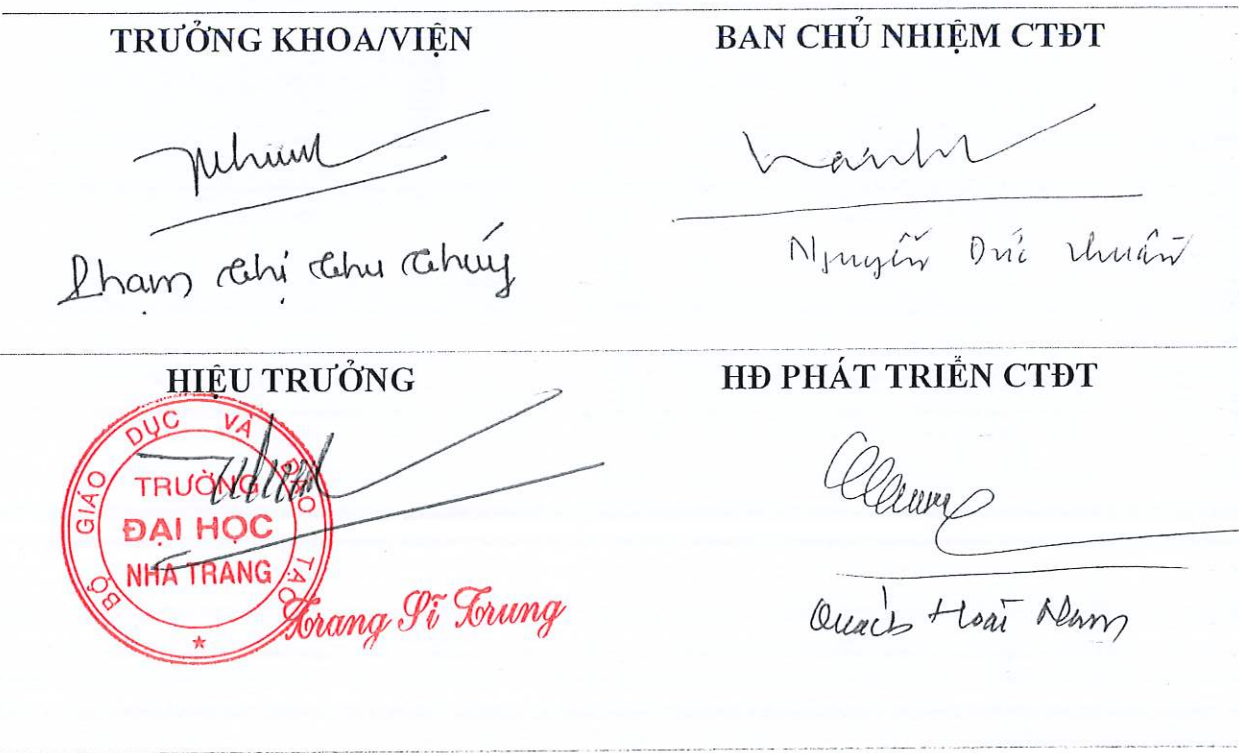 TRƯỞNG KHOA/VIỆN
Phạm Thị Thu Thúy
BAN CHỦ NHIỆM CTĐT
Nguyễn Đức Thuần
HIỆU TRƯỞNG
BỘ GIÁO DỤC VÀ ĐÀO TẠO
TRƯỜNG
ĐẠI HỌC
NHA TRANG
Trang Sĩ Trung
HĐ PHÁT TRIỂN CTĐT
Quách Hoài Nam